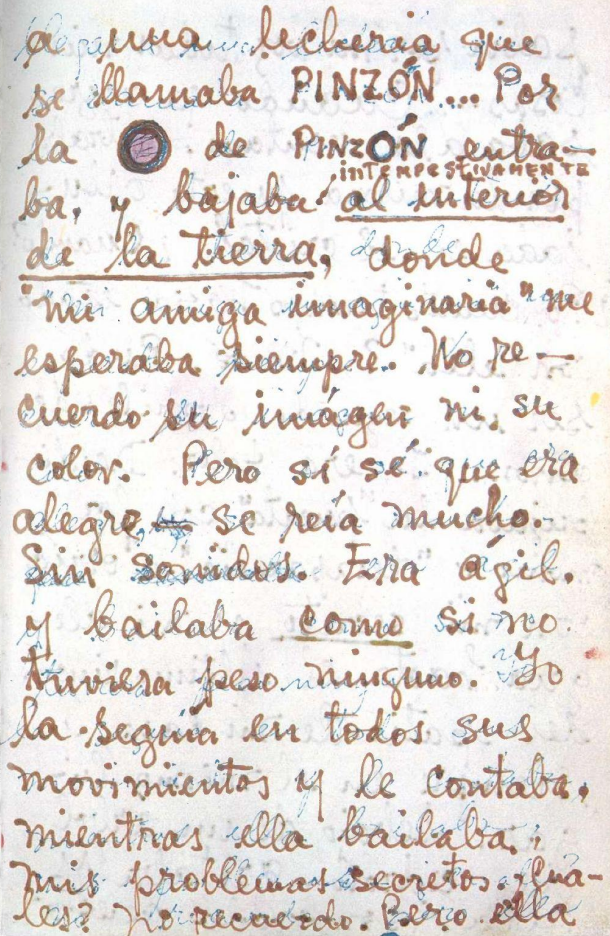 de una lecheria que
se llamaba PINZÓN... Por
la O de PINZÓN entra-
INTEMPESTIVAMENTE
ba, y bajaba al interior
de la tierra, donde
"mi amiga imaginaria" me
esperaba siempre. No re-
cuerdo su imágen ni su
color. Pero sí sé que era
alegre, se reía mucho.
Sin sonidos. Era ágil.
y bailaba como si no
tuviera peso ninguno. Yo
la seguía en todos sus
movimientos y le contaba,
mientras ella bailaba,
mis problemas secretos. Cuá-
les? No recuerdo. Pero ella